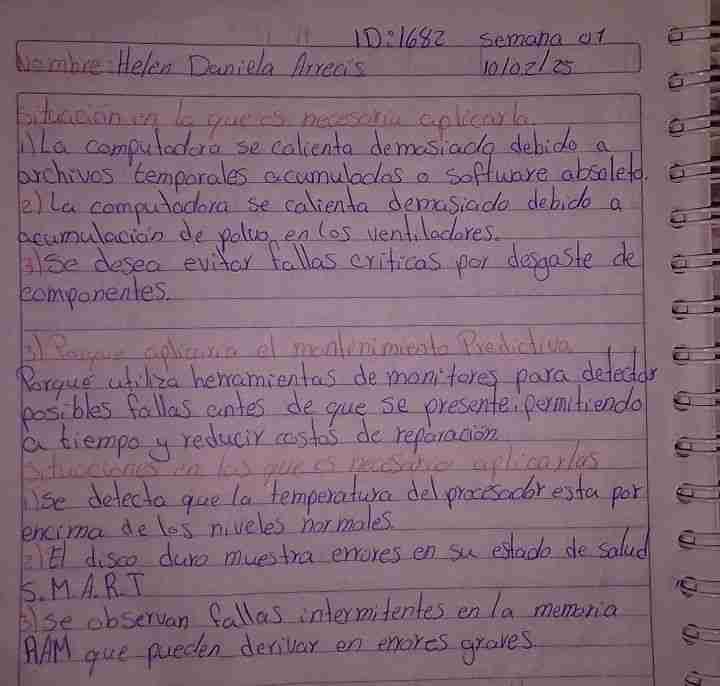 ID:1682 Semana 01
Nombre: Helen Daniela Arrecis 10/02/25
Situación en la que es necesaria aplicarla.
1) La computadora se calienta demasiado debido a
archivos temporales acumulados o software absoleto.
2) La computadora se calienta demasiado debido a
acumulación de polvo en los ventiladores.
3) Se desea evitar fallas criticas por desgaste de
componentes.
3) Porque aplicaria el mantenimiento Predictivo
Porque utiliza herramientas de monitores para detectar
posibles fallas antes de que se presente, permitiendo
a tiempo y reducir costos de reparación
Situaciones en las que es necesario aplicarlas
1) Se detecta que la temperatura del procesador esta por
encima de los niveles normales.
2) El disco duro muestra errores en su estado de salud
S.M.A.R.T
3) Se observan fallas intermitentes en la memoria
RAM que pueden derivar en errores graves.